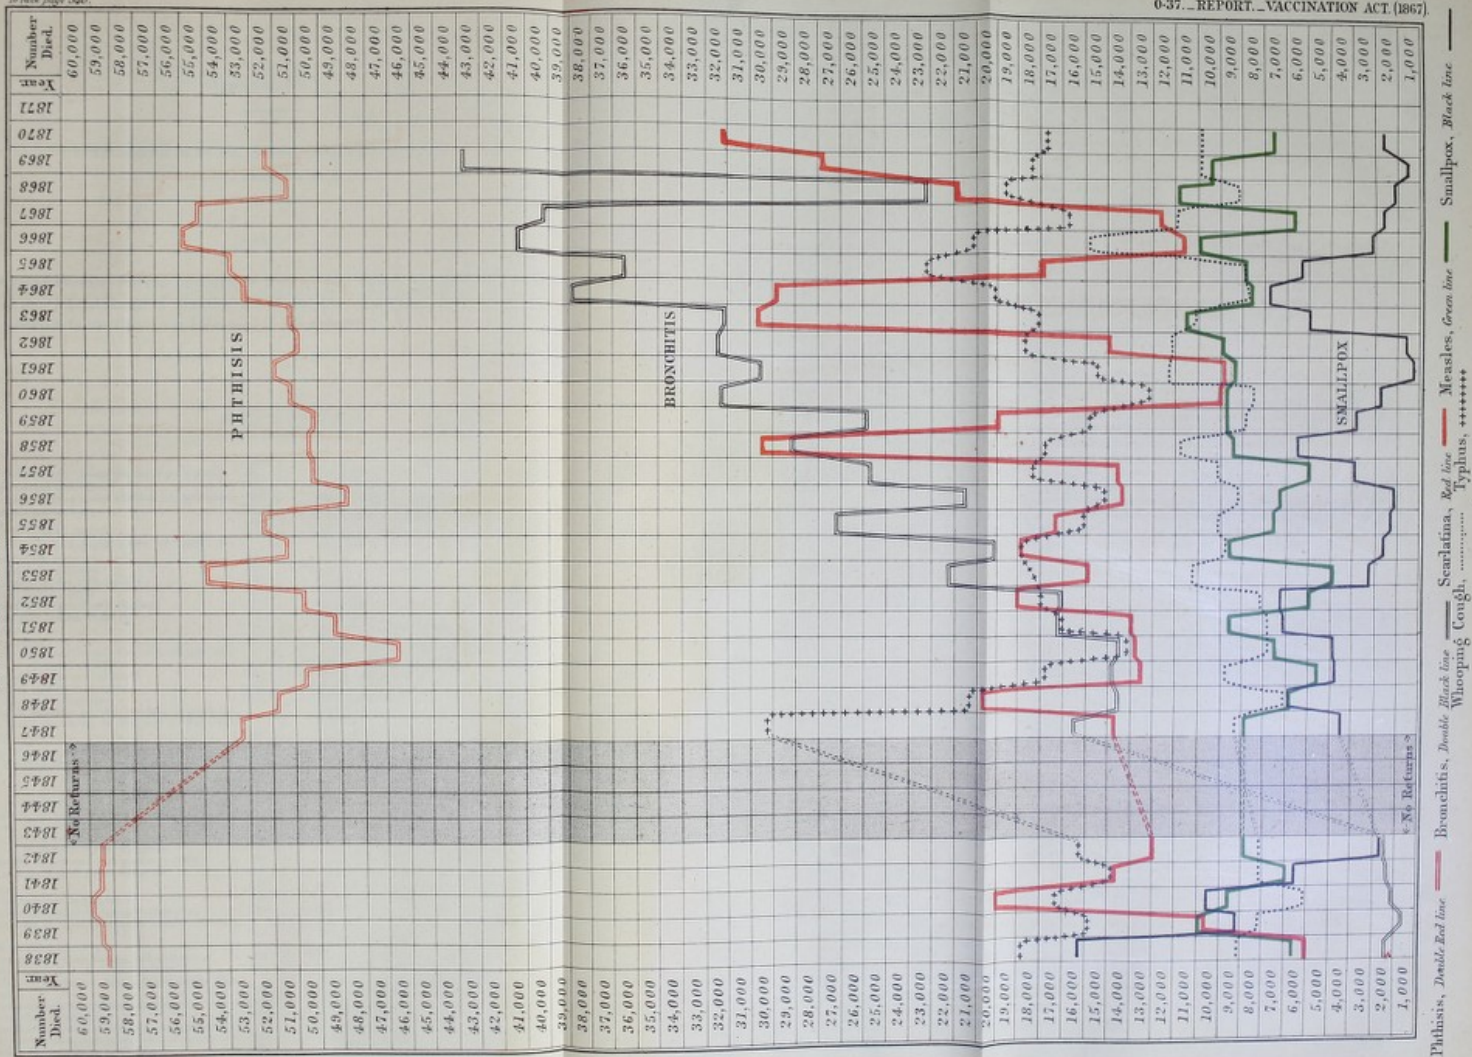 0-37._REPORT._VACCINATION ACT. (1867).
Number
Died.
60,000
59,000
58,000
57,000
56,000
55,000
54,000
53,000
52,000
51,000
50,000
49,000
48,000
47,000
46,000
45,000
44,000
43,000
42,000
41,000
40,000
39,000
38,000
37,000
36,000
35,000
34,000
33,000
32,000
31,000
30,000
29,000
28,000
27,000
26,000
25,000
24,000
23,000
22,000
21,000
20,000
19,000
18,000
17,000
16,000
15,000
14,000
13,000
12,000
11,000
10,000
9,000
8,000
7,000
6,000
5,000
4,000
3,000
2,000
1,000
Year.
1871
1870
1869
1868
1867
1866
1865
1864
1863
1862
1861
1860
1859
1858
1857
1856
1855
1854
1853
1852
1851
1850
1849
1848
1847
1846
1845
1844
1843
1842
1841
1840
1839
1838
Year.
PHTHISIS
BRONCHITIS
SMALLPOX
No Returns
No Returns
Number
Died.
60,000
59,000
58,000
57,000
56,000
55,000
54,000
53,000
52,000
51,000
50,000
49,000
48,000
47,000
46,000
45,000
44,000
43,000
42,000
41,000
40,000
39,000
38,000
37,000
36,000
35,000
34,000
33,000
32,000
31,000
30,000
29,000
28,000
27,000
26,000
25,000
24,000
23,000
22,000
21,000
20,000
19,000
18,000
17,000
16,000
15,000
14,000
13,000
12,000
11,000
10,000
9,000
8,000
7,000
6,000
5,000
4,000
3,000
2,000
1,000
Phthisis, Double Red line Bronchitis, Double Black line Scarlatina, Red line Measles, Green line Smallpox, Black line
Whooping Cough, ............ Typhus, ++++++++